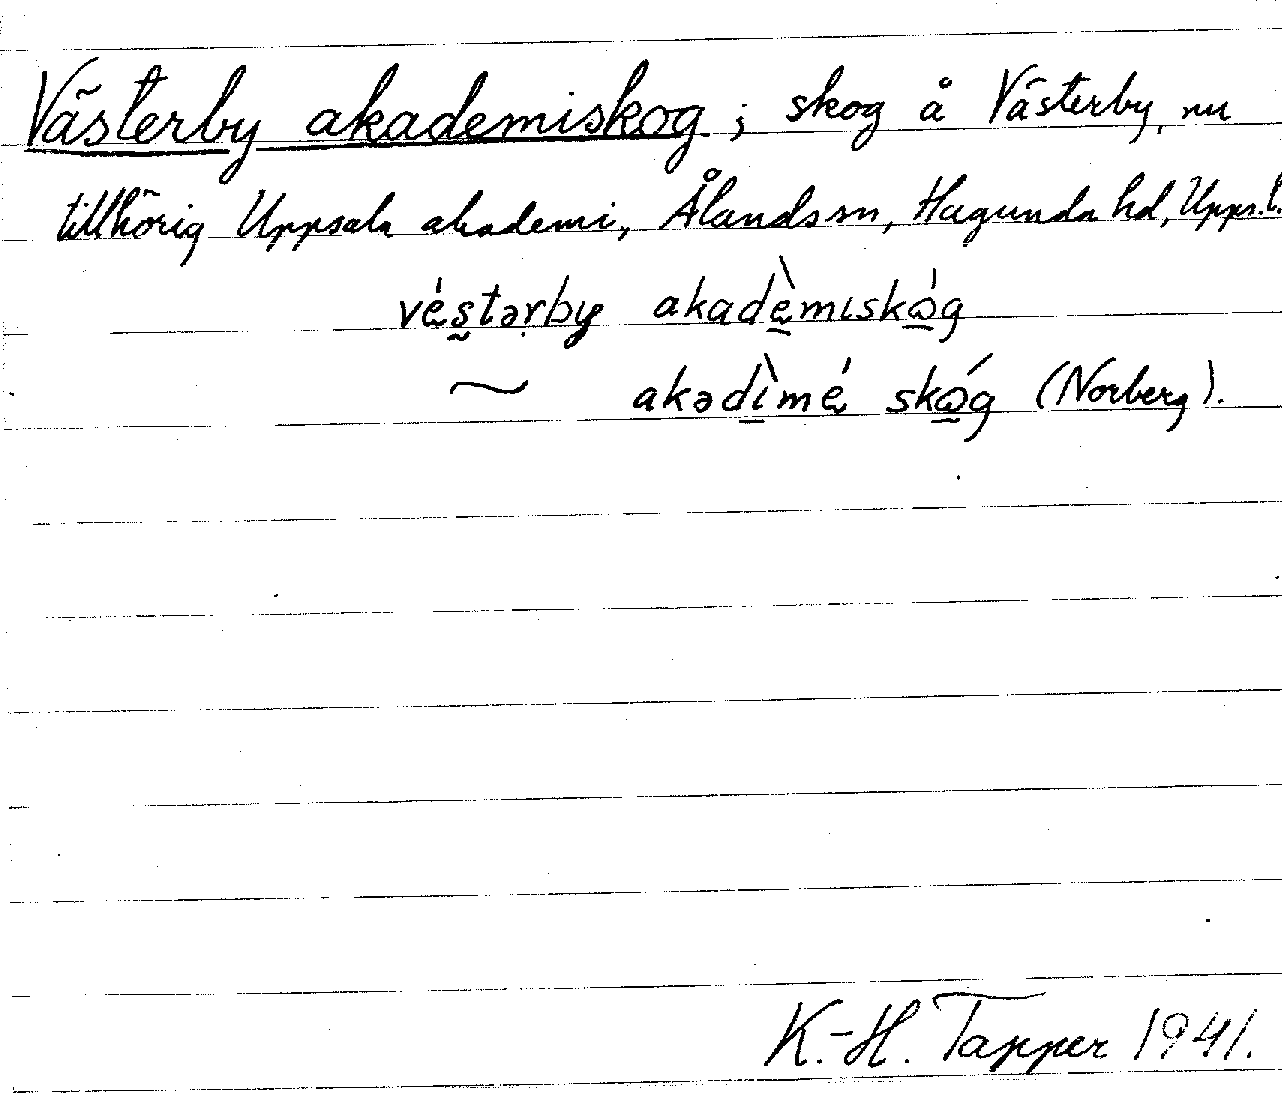 Västerby akademiskog; skog å Västerby, nu
tillhörig Uppsala akademi, Ålands sn, Hagunda hd, Upps. l.
véstərby akadèmıskóg
~ akədìmé skóg (Norberg).
K.-H. Tapper 1941.